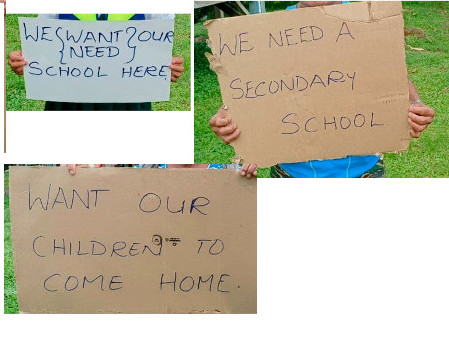 WE {WANT} OUR
{NEED}
SCHOOL HERE
WE NEED A
SECONDARY
SCHOOL
WANT OUR
CHILDREN TO
COME HOME.